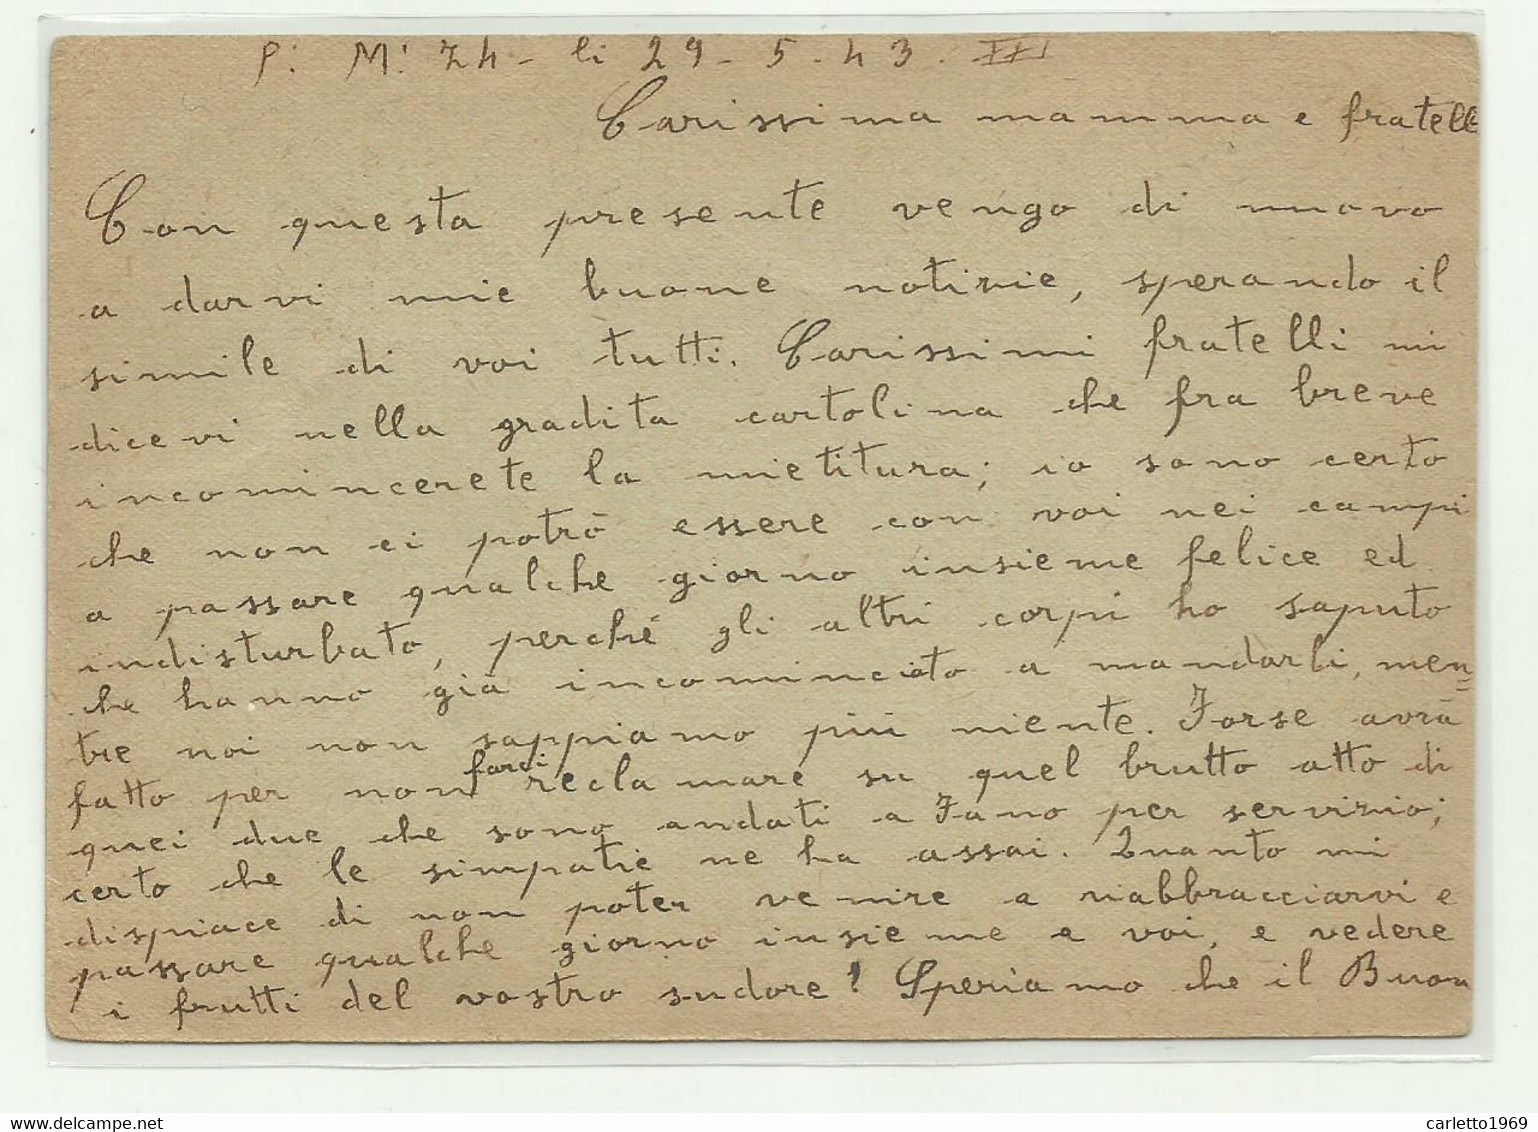 P. M. 74 - li 29 - 5 - 43. XXI
Carissima mamma e fratelli
Con questa presente vengo di nuovo
a darvi mie buone notizie, sperando il
simile di voi tutti. Carissimi fratelli mi
dicevi nella gradita cartolina che fra breve
incomincerete la mietitura; io sono certo
che non ci potrò essere con voi nei campi
a passare qualche giorno insieme felice ed
indisturbato, perché gli altri corpi ho saputo
che hanno già incominciato a mandarli, men=
tre noi non sappiamo più niente. Forse avrà
fatto per non farci reclamare su quel brutto atto di
quei due che sono andati a Fano per servizio;
certo che le simpatie ne ha assai. Quanto mi
dispiace di non poter venire a riabbracciarvi e
passare qualche giorno insieme a voi, e vedere
i frutti del vostro sudore! Speriamo che il Buon
carletto1969